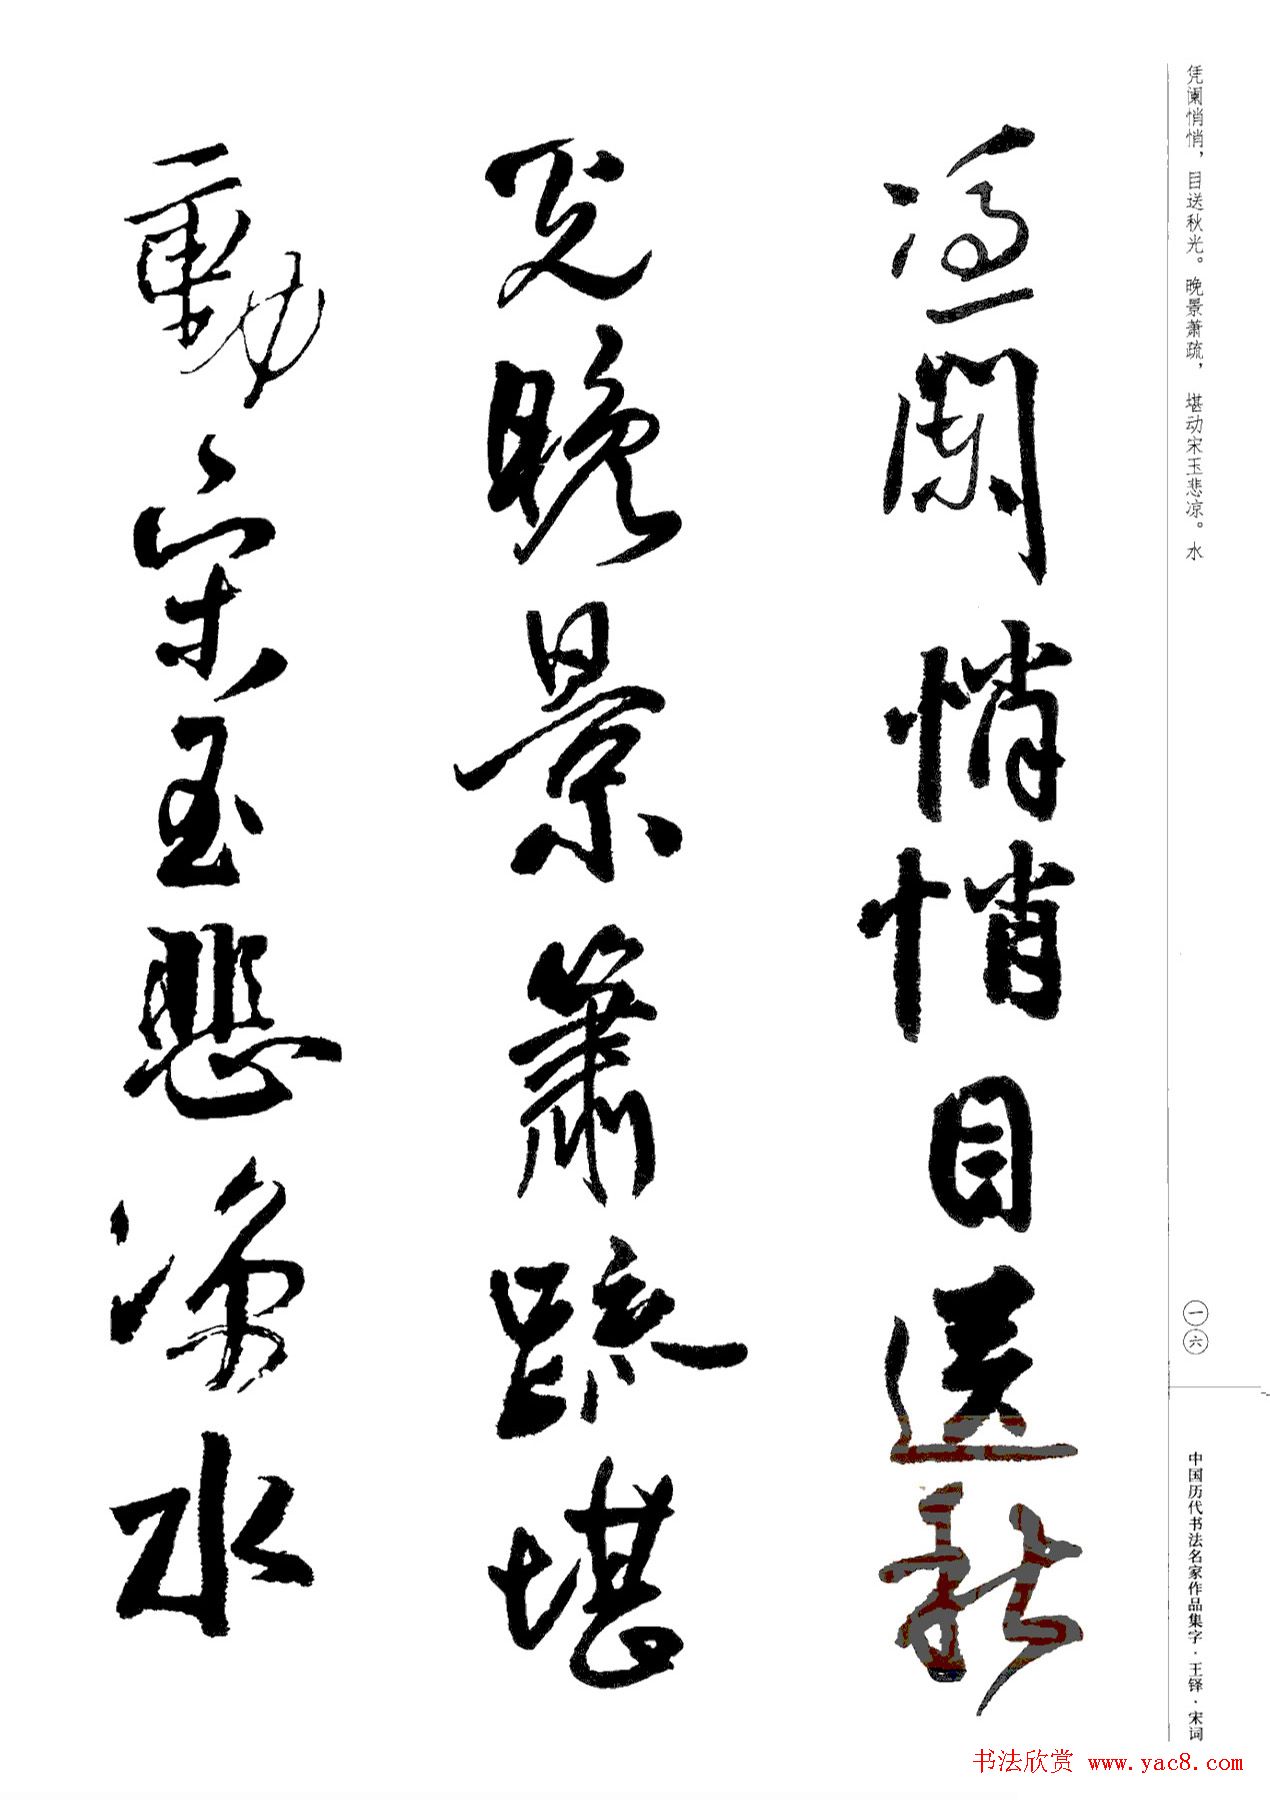 凭阑悄悄，目送秋光。晚景萧疏，堪动宋玉悲凉。水
憑闌悄悄目送秋
光晚景蕭疏堪
動宋玉悲涼水
一六
中国历代书法名家作品集字·王铎·宋词
书法欣赏 www.yac8.com